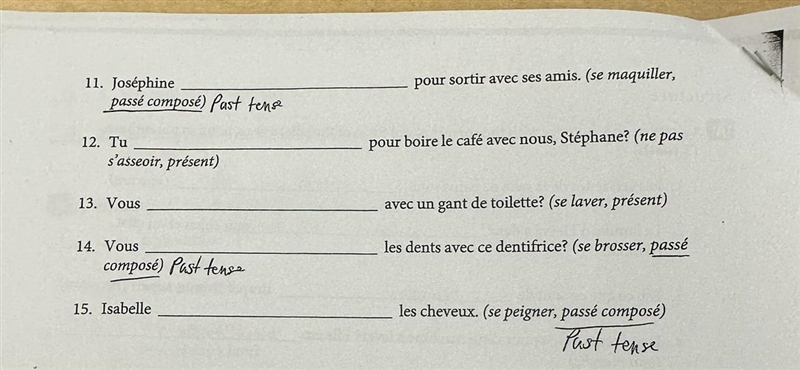 11. Joséphine ______________________ pour sortir avec ses amis. (se maquiller,
passé composé) Past tense
12. Tu ______________________ pour boire le café avec nous, Stéphane? (ne pas
s'asseoir, présent)
13. Vous ______________________ avec un gant de toilette? (se laver, présent)
14. Vous ______________________ les dents avec ce dentifrice? (se brosser, passé
composé) Past tense
15. Isabelle ______________________ les cheveux. (se peigner, passé composé)
Past tense